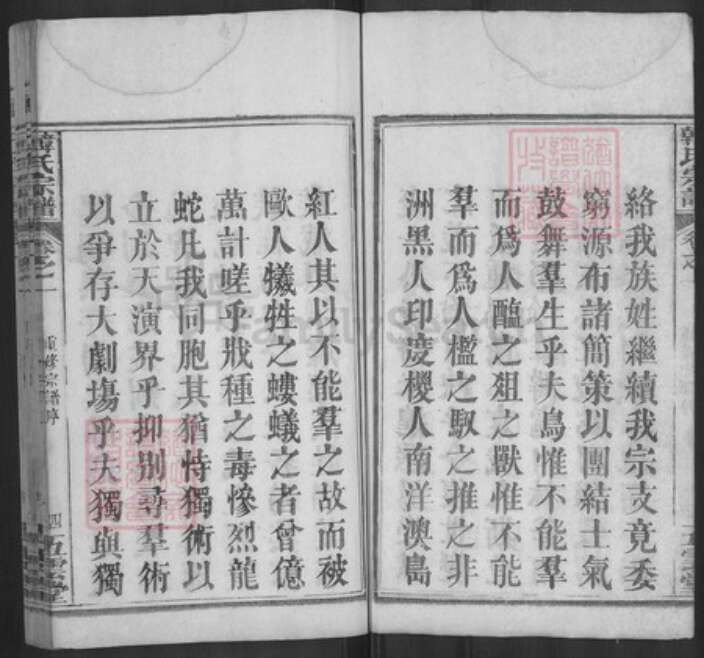 絡我族姓繼續我宗支竟委
窮源布諸簡策以團結士氣
鼓舞羣生乎夫鳥惟不能羣
而爲人醢之俎之獸惟不能
羣而爲人檻之馭之推之非
洲黑人印度椶人南洋澳島
紅人其以不能羣之故而被
歐人犧牲之螻蟻之者曾億
萬計嗟乎戕種之毒慘烈龍
蛇凡我同胞其猶恃獨術以
立於天演界乎抑別尋羣術
以爭存大劇塲乎夫獨與獨
韓氏宗譜
卷之一
重修宗譜序
四
FamilySearch